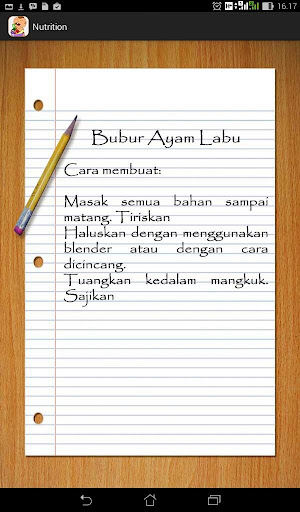 16.17
Nutrition
Bubur Ayam Labu
Cara membuat:
Masak semua bahan sampai
matang. Tiriskan
Haluskan dengan menggunakan
blender atau dengan cara
dicincang.
Tuangkan kedalam mangkuk.
Sajikan